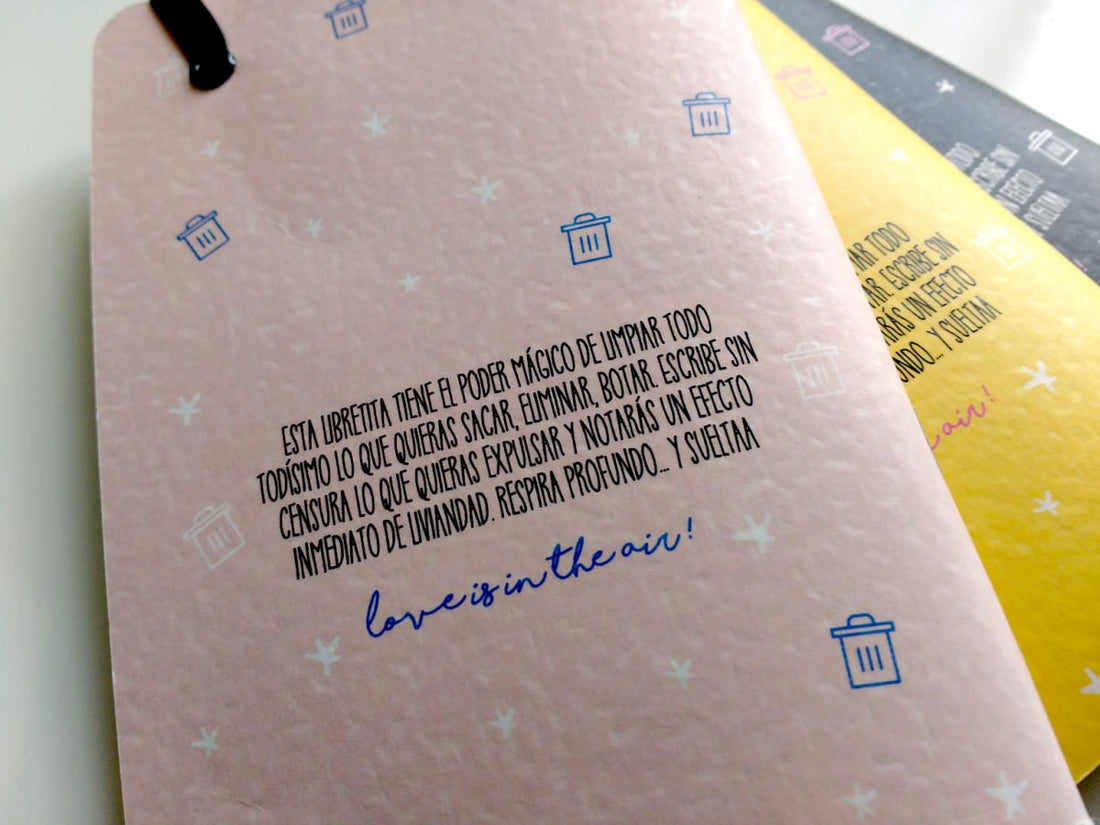 ESTA LIBRETITA TIENE EL PODER MÁGICO DE LIMPIAR TODO
TODÍSIMO LO QUE QUIERAS SACAR, ELIMINAR, BOTAR. ESCRIBE SIN
CENSURA LO QUE QUIERAS EXPULSAR Y NOTARÁS UN EFECTO
INMEDIATO DE LIVIANDAD. RESPIRA PROFUNDO... Y SUELTAA
love is in the air!
TODO
ESCRIBE SIN
UN EFECTO
Y SUELTAA
air!